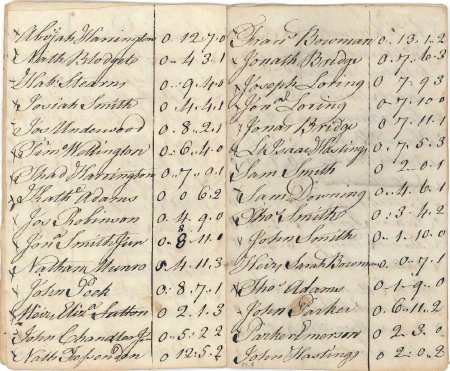 Abijah Harrington 0..12..7..0
Nath Blodget 0..4..3..1
Hab Stearns 0..9..4..0
Josiah Smith 0..4..4..1
Jos Underwood 0..8..2..1
Wellington 0..6..4..0
Thad Harrington 0..7..0..1
Adams 0 0 6..2
Jos Robinson 0..4..9..0
Jona Smith Jun 0..8..11..0
Nathan Munro 0..4..11..3
John Peck 0..8..7..1
Heirs Eliza Sutton 0..2..1..3
John Chandler Jr 0..5..2..2
Nath Fessenden 0 12..5..2
Frans Bowman 0..13..1..2
Jonath Bridge 0..7..6..3
Joseph Loring 0 7..9 3
Jona Loring 0..7..10..0
Jonas Bridge 0..7..11..1
Lt Isaac Hastings 0..7..5..3
Sam Smith 0 2..0..1
Sam Downing 0..4..6..1
Thos Smith 0..3..4..2
John Smith 0..1..10..0
Heirs Saml Bowman 0..0..7..1
Thos Adams 0..1..9..0
John Parker 0..6..11..2
Parker Emerson 0 2..3..0
John Hastings 0 2..0..2